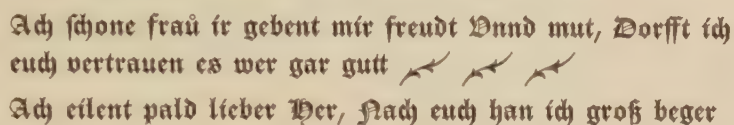 Ach schone fraů ir gebent mir freudt Vnnd mut, Dorfft ich
euch vertrauen es wer gar gutt
Ach eilent pald lieber Her, Nach euch han ich groß beger